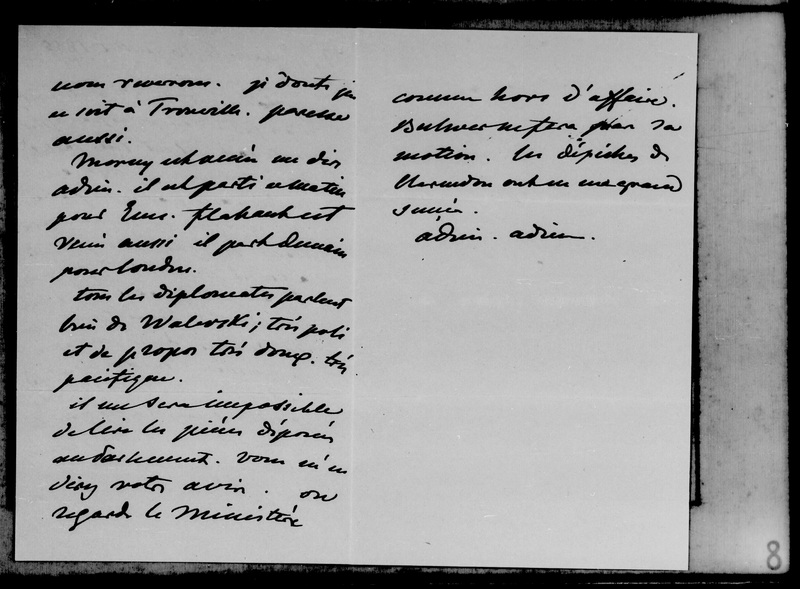 nous reverrons. je doute que
ce soit à Trouville. paresse
aussi.
Morny est venu me dire
adieu. il est parti ce matin
pour Ems. flahaut est
venu aussi il part demain
pour Londres.
tous les diplomates parlent
bien de Walewski; très poli
et de propos très doux. très
pacifique.
il me sera impossible
de lire les pièces déposées
au parlement. vous m'en
direz votre avis. on
regarde le Ministère
comme hors d'affaire.
Bulwer ne fera pas sa
motion. les dépêches de
Clarendon ont eu un grand
succès.
adieu. adieu.
8